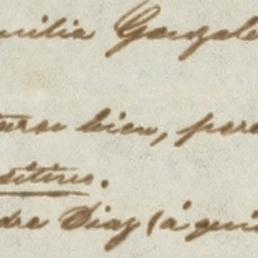 milia Gonzale
turse bien, pero
sitivo.
dre Diaz (á quie